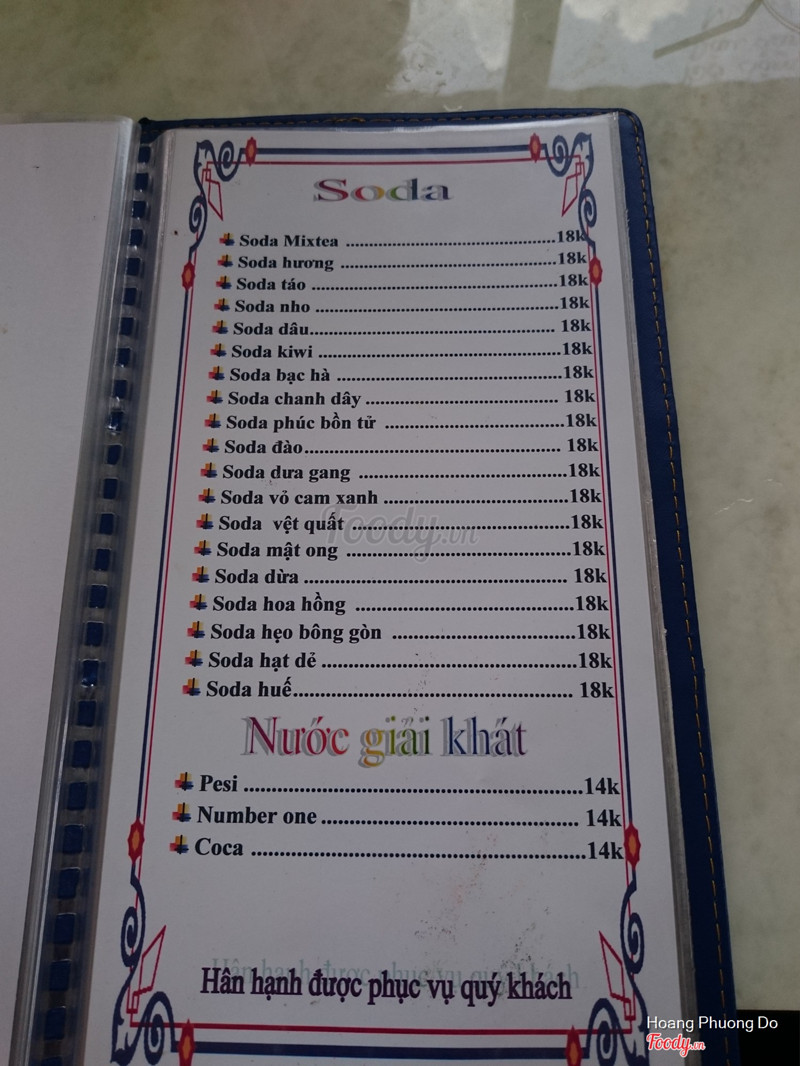 Soda
Soda Mixtea ..........18k
Soda hương ..........18k
Soda táo ..........18k
Soda nho ..........18k
Soda dâu.......... 18k
Soda kiwi ..........18k
Soda bạc hà ..........18k
Soda chanh dây .......... 18k
Soda phúc bồn tử ..........18k
Soda đào.......... 18k
Soda dưa gang ..........18k
Soda vỏ cam xanh ..........18k
Soda vệt quất ..........18k
Foody.vn
Soda mật ong ..........18k
Soda dừa .......... 18k
Soda hoa hồng ..........18k
Soda hẹo bông gòn ..........18k
Soda hạt dẻ ..........18k
Soda huế.......... 18k
Nước giải khát
Pesi ..........14k
Number one .......... 14k
Coca ..........14k
Hân hạnh được phục vụ quý khách
Hoang Phuong Do
Foody.vn